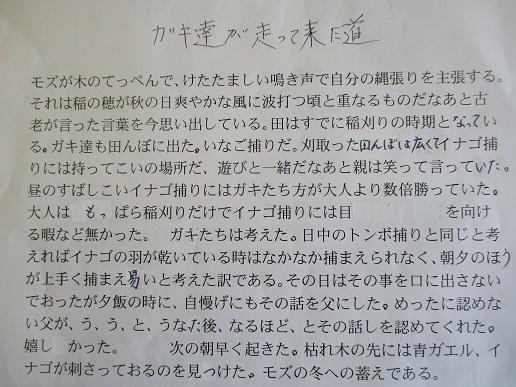 ガキ達が走って来た道
モズが木のてっぺんで、けたたましい鳴き声で自分の縄張りを主張する。
それは稲の穂が秋の日爽やかな風に波打つ頃と重なるものだなあと古
老が言った言葉を今思い出している。田はすでに稲刈りの時期となってい
る。ガキ達も田んぼに出た。いなご捕りだ。刈取った田んぼは広くてイナゴ捕
りには持ってこいの場所だ、遊びと一緒だなあと親は笑って言っていた。
昼のすばしこいイナゴ捕りにはガキたち方が大人より数倍勝っていた。
大人は もっぱら稲刈りだけでイナゴ捕りには目 を向け
る暇など無かった。 ガキたちは考えた。日中のトンボ捕りと同じと考
えればイナゴの羽が乾いている時はなかなか捕まえられなく、朝夕のほう
が上手く捕まえ易いと考えた訳である。その日はその事を口に出さない
でおったが夕飯の時に、自慢げにもその話を父にした。めったに認めな
い父が、う、う、と、うなった後、なるほど、とその話しを認めてくれた。
嬉し かった。 次の朝早く起きた。枯れ木の先には青ガエル、イ
ナゴが刺さっておるのを見つけた。モズの冬への蓄えである。